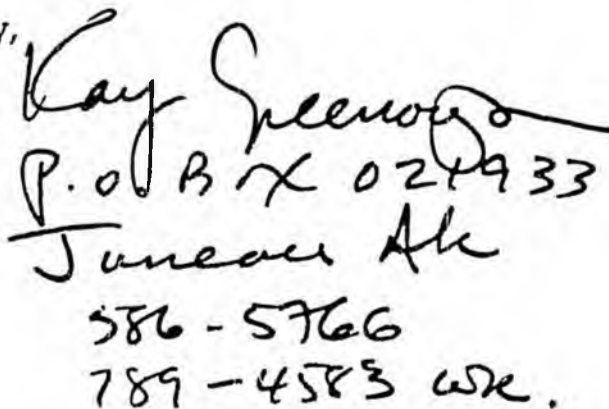 Kay Greenough
P.O. BX 021933
Juneau Ak
586-5766
789-4583 wk.